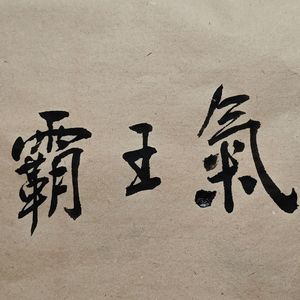 霸王氣